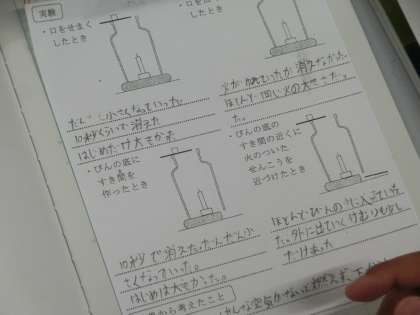 実験
・口をせまく
したとき
したとき
だんだん小さくなっていった。
10秒くらいで消えた
はじめだけ大きかった
火がゆれていたが消えなかった。
ほとんど同じ火の大きさだっ
た。
・びんの底に
すき間を
作ったとき
・びんの底の
すき間の近くに
火のついた
せんこうを
近づけたとき
10秒で消えた。だんだん小
さくなっていった。
はじめは大きかった。
ほとんどびんの
た。外に出ていくけむりも少し
だけあった
から考えたこと
空気がないと燃えず、